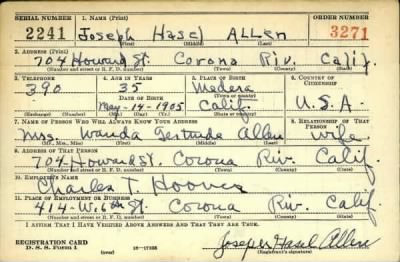 SERIAL NUMBER 1. NAME (Print) ORDER NUMBER
2241 Joseph Hasel ALLEN 3271
(First) (Middle) (Last)
2. ADDRESS (Print)
704 Howard St. Corona Riv. Calif.
(Number and street or R. F. D. number) (Town) (County) (State)
3. TELEPHONE 4. AGE IN YEARS 5. PLACE OF BIRTH 6. COUNTRY OF CITIZENSHIP
390 35 Madera
DATE OF BIRTH (Town or county)
May-14-1905 Calif. U.S.A.
(Exchange) (Number) (Mo.) (Day) (Yr.) (State or country)
7. NAME OF PERSON WHO WILL ALWAYS KNOW YOUR ADDRESS 8. RELATIONSHIP OF THAT PERSON
Mrs. Wanda Gertrude Allen Wife
(Mr., Mrs., Miss) (First) (Middle) (Last)
9. ADDRESS OF THAT PERSON
704 Howard St. Corona Riv. Calif.
(Number and street or R. F. D. number) (Town) (County) (State)
10. EMPLOYER'S NAME
Charles T. Hoover
11. PLACE OF EMPLOYMENT OR BUSINESS
414-W. 6th St. Corona Riv. Calif.
(Number and street or R. F. D. number) (Town) (County) (State)
I AFFIRM THAT I HAVE VERIFIED ABOVE ANSWERS AND THAT THEY ARE TRUE.
REGISTRATION CARD
D. S. S. Form 1 Joseph Hasel Allen
(Registrant's signature)